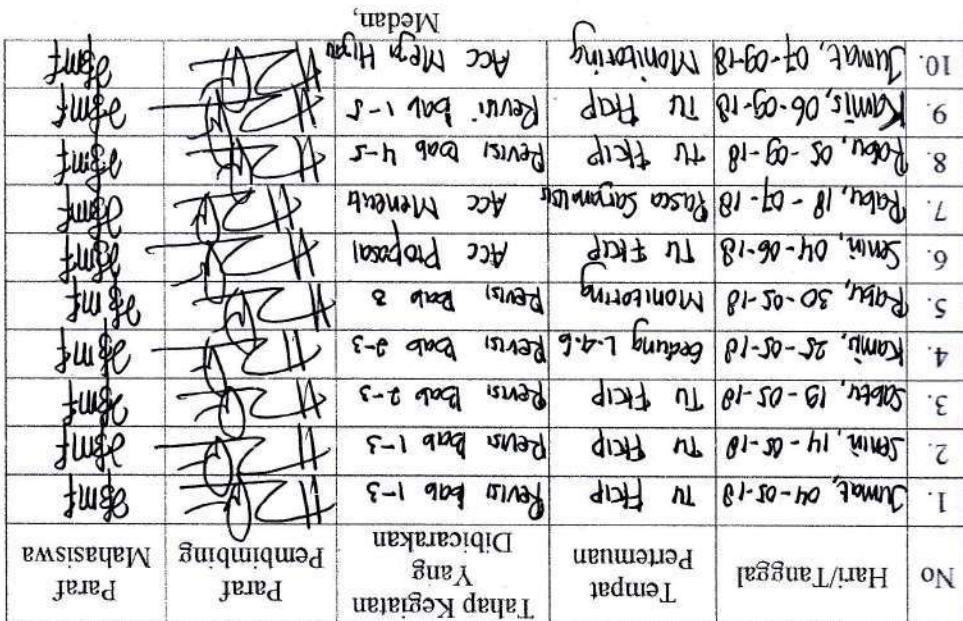 No Hari/Tanggal Tempat Pertemuan Tahap Kegiatan Yang Dibicarakan Paraf Pembimbing Paraf Mahasiswa
1. Jumat, 04-05-18 TU FKIP Revisi Bab 1-3
2. Senin, 14-05-18 TU FKIP Revisi Bab 1-3
3. Sabtu, 19-05-18 TU FKIP Revisi Bab 2-3
4. Kamis, 25-05-18 Gedung L.4.6 Revisi Bab 2-3
5. Rabu, 30-05-18 Monitoring Revisi Bab 3
6. Senin, 04-06-18 TU FKIP Acc Proposal
7. Rabu, 18-07-18 Pasca Sarjana Acc
8. Rabu, 05-09-18 TU FKIP Revisi Bab 4-5
9. Kamis, 06-09-18 TU FKIP Revisi Bab 1-5
10. Jumat, 07-09-18 Monitoring Acc Meja Hijau
Medan,